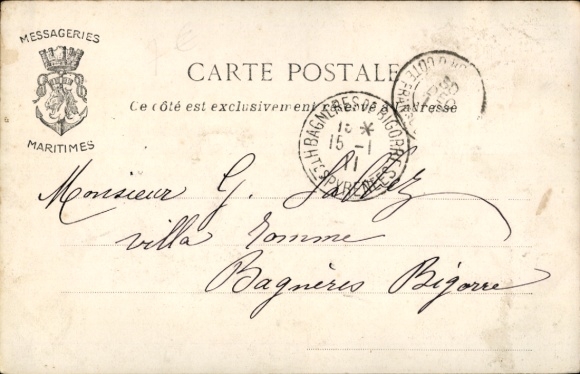 MESSAGERIES
MARITIMES
CARTE POSTALE
Ce côté est exclusivement réservé à l'adresse
BAGNÈRES DE BIGORRE
15 -1
11
HTES PYRÉNÉES
Monsieur G.
villa
Bagnères Bigorre